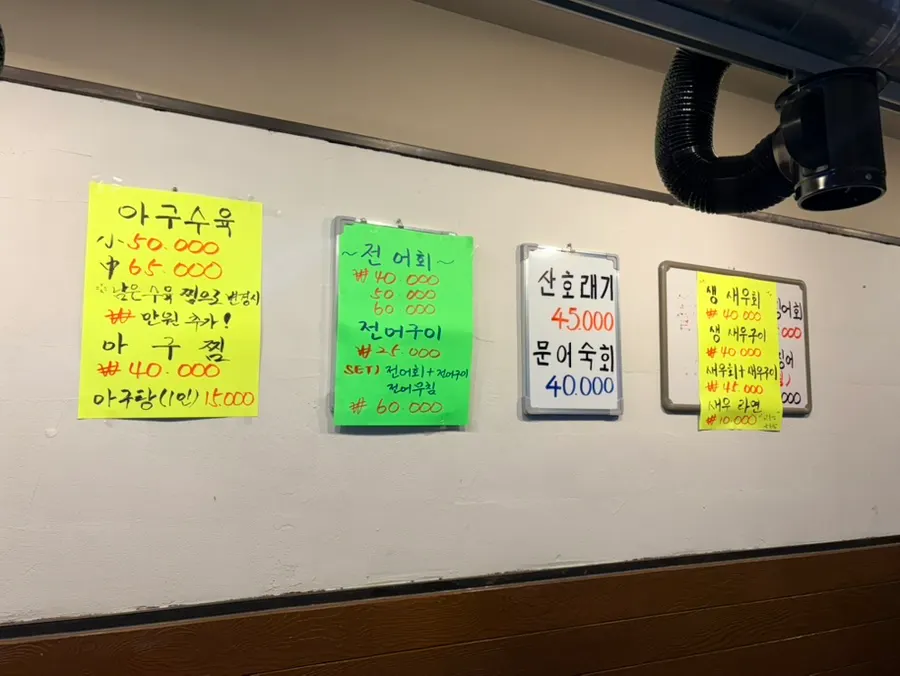 아구수육
小 50.000
中 65.000
※남은수육 찜으로 변경시
₩ 만원 추가!
아구찜
₩ 40.000
아구탕(1인) 15.000
~전어회~
₩ 40.000
50.000
60.000
전어구이
₩ 25.000
SET) 전어회+전어구이
전어무침
₩ 60.000
산호래기
45.000
문어숙회
40.000
생 새우회
₩ 40.000
생 새우구이
₩ 40.000
새우회+새우구이
₩ 45.000
새우 라면
₩ 10.000